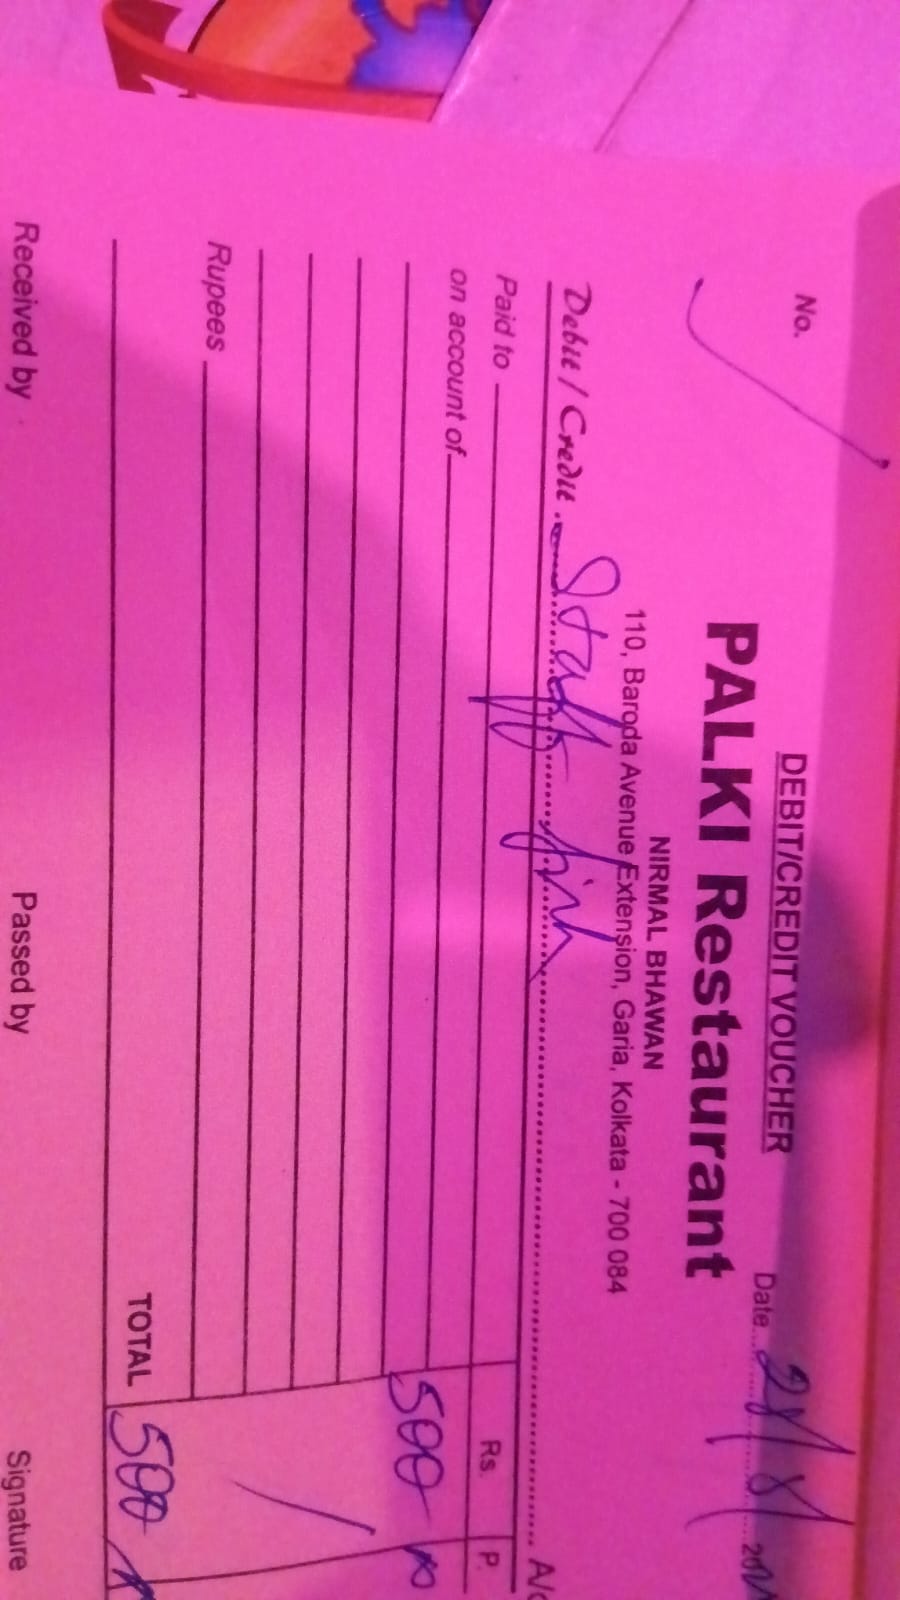 DEBIT/CREDIT VOUCHER
No.
Date
PALKI Restaurant
NIRMAL BHAWAN
110, Baroda Avenue Extension, Garia, Kolkata - 700 084
Debit / Credit Staff A/c
Paid to
Rs. P.
on account of
500
Rupees
TOTAL 500
Received by Passed by Signature